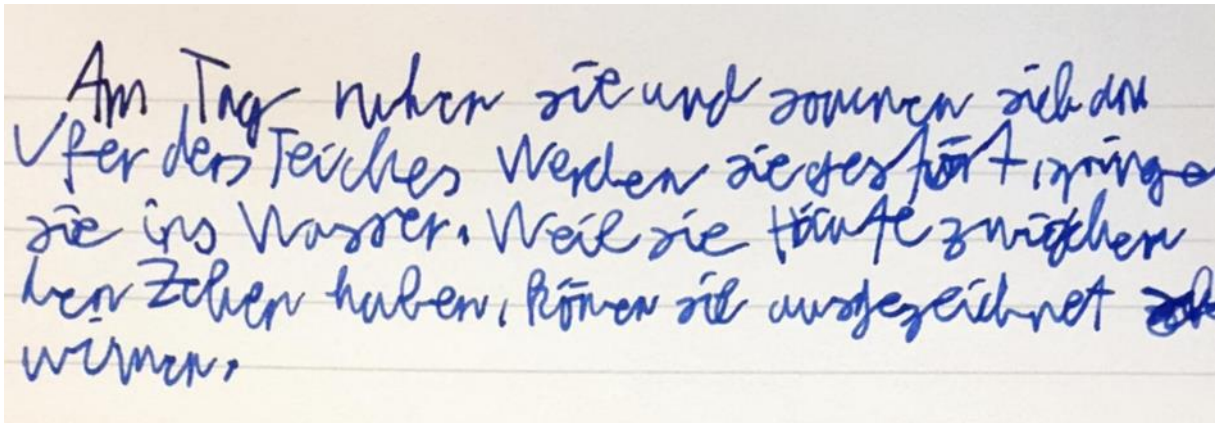 Am Tag ruhen sie und sonnen sich am
Ufer des Teiches Werden sie gestört, springe
sie ins Wasser. Weil sie Häute zwischen
den Zehen haben, könen sie ausgezeichnet sch
wimen.